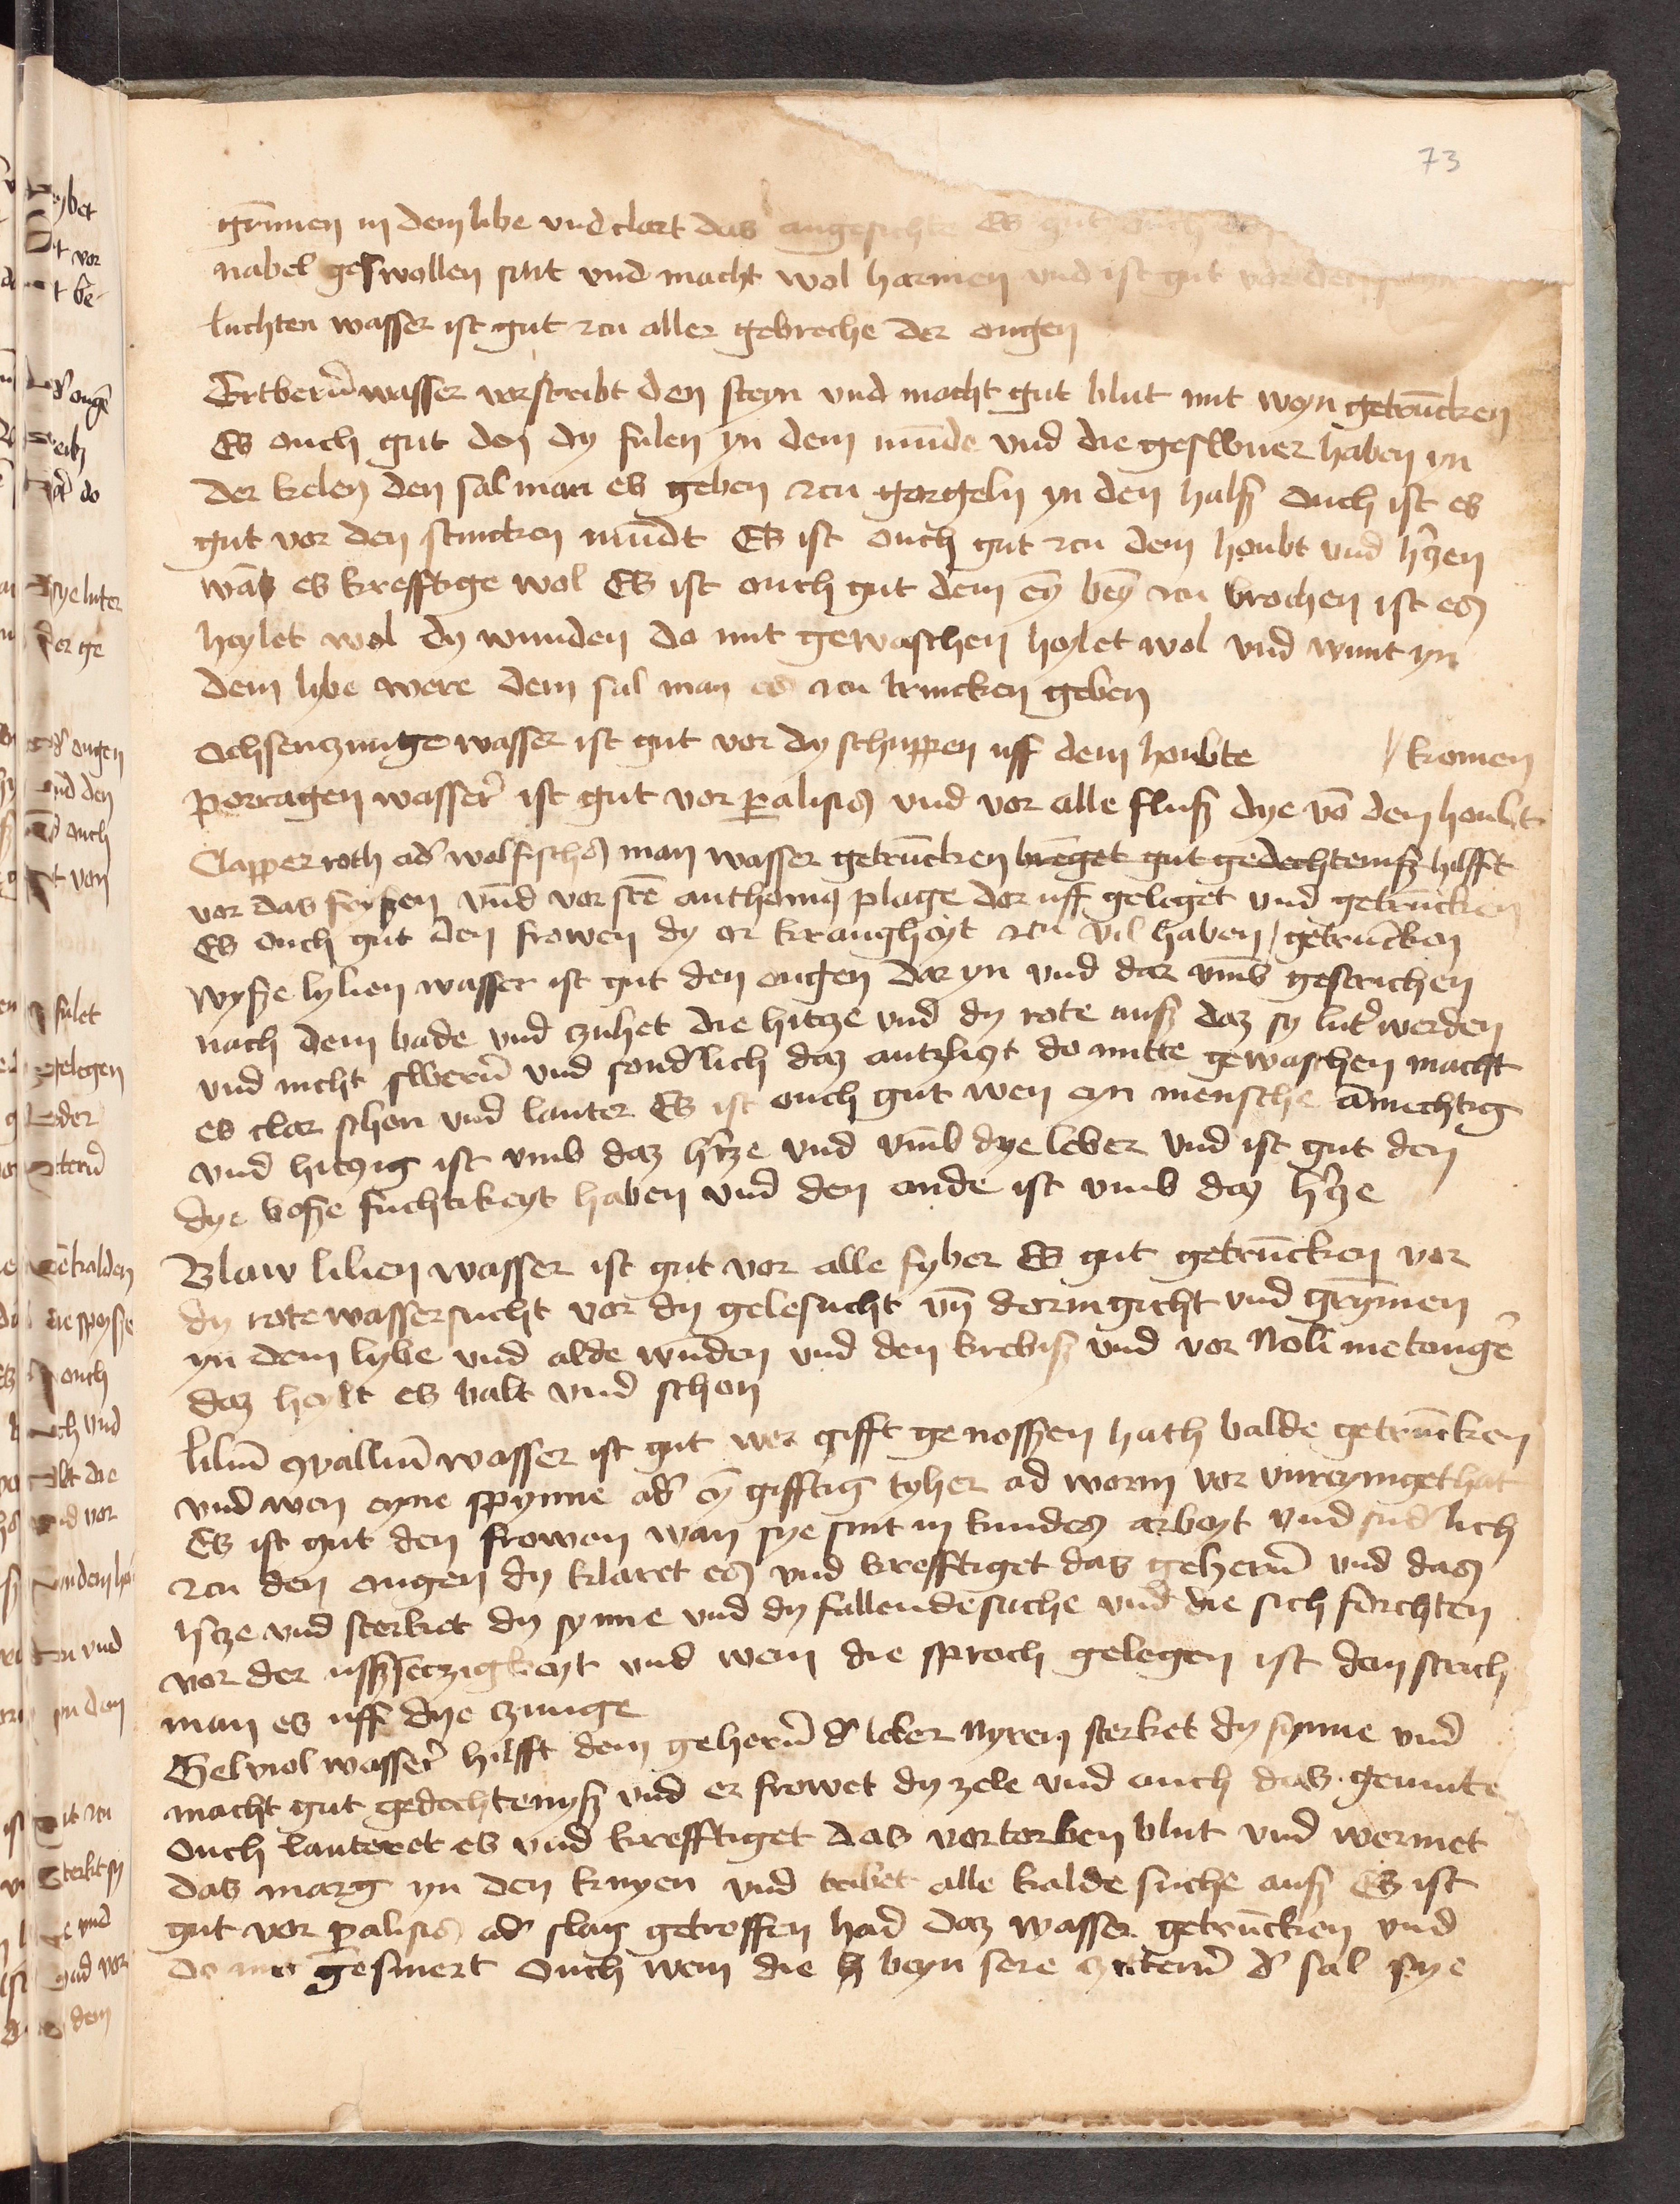 73
gr̄mmen in dem libe vnd clort das angesichte Es gut ouch
nabel geswollen sint vnd macht wol harmen vnd ist gut vor den
luchten wasser ist gut zcu aller gebreche der ougen
Ertbern̄ wasser vorstribt den steyn vnd macht gut blut mit weyn getrūcken
Es ouch gut den dy fulen yn dem mūde vnd die geswuer haben yn
der kelen den sal man es geben zcu gorgeln yn den halsz ouch ist es
gut vor den stincken mūdt Es ist ouch gut zcu dem houbt vnd h̓czen
wā es krefftige wol Es ist ouch gut dem eȳ beȳ zcu brochen ist es
heylet wol dy wunden do mit gewaschen heylet wol vnd wunt yn
dem lybe were dem sal man es zcu trincken geben
Ochsenczunge wasser ist gut vor dy schuppen uff dem houbte // komen
Porragen wasser̓ ist gut vor palisis vnd vor alle flusz dye vō dem houbt
Clapper roth ad̓ wolfisches man wasser getrūcken brēget gut gedechtenisz hilfft
vor das freyszen vnd vor stē anthonig plage dor uff geleget vnd getrūcken
Es ouch gut den frowen dy or krangheyt zcu vil haben / getrūcken
Wysze lylien wasser ist gut den ougen dar yn vnd dar vmb gestrichen
nach dem bade vnd czuhet die hitcze vnd dy rote ausz daz sy lut̓ werden
vnd nicht swern̄ vnd sond̓lich daz antzliczt do mitte gewaschen macht
es clor schon vnd lauter Es ist ouch gut wen eyn mensche āmechtig
vnd hitczig ist vmb daz h̓tze vnd vmb dye leber vnd ist gut den
dye bosze fuchtikeyt haben vnd den ande ist vmb das h̓cze
Blaw lilien wasser ist gut vor alle fyber Es gut getrūcken vor
dy rote wassersucht vor dy gelesucht vn̄ dormgicht vnd grȳmen
yn dem lybe vnd alde wūden vnd den krebisz vnd vor Noli me tange̓
daz heylt es balt vnd schon
Liliū ꝯvalliū wasser ist gut wer gifft genosszen hath balde getrūcken
vnd wen eyne spynne ad̓ eȳ gifftig tyher ad worm vor vnreyniget hat
Es ist gut den frowen wan sye sint in kindes arbeyt vnd sūd̓lich
zcu den ougen dy klaret es vnd krefftiget das gehern̄ vnd das
h̓tze vnd sterket dy synne vnd dy fallendesuche vnd die sich forchten
vor der uszsetzigkeyt vnd wem die sproch gelegen ist den strich
man es uff dye czunge
Gelviol wasser̓ hilfft dem gehern̄ d̓ leber Nyren sterket dy synne vnd
macht gut gedechtenysz vnd er frowet dy zele vnd auch das gemute
Ouch lauteret es vnd krefftiget das vortorben blut vnd wermet
das marg yn den knyen vnd tribet alle kalde suche ausz Es ist
gut vor palisis ad̓ slag getroffen had daz wasser getrūcken vnd
do mit gesmert Ouch wem die beyn sere czittern̄ d̓ sal sye